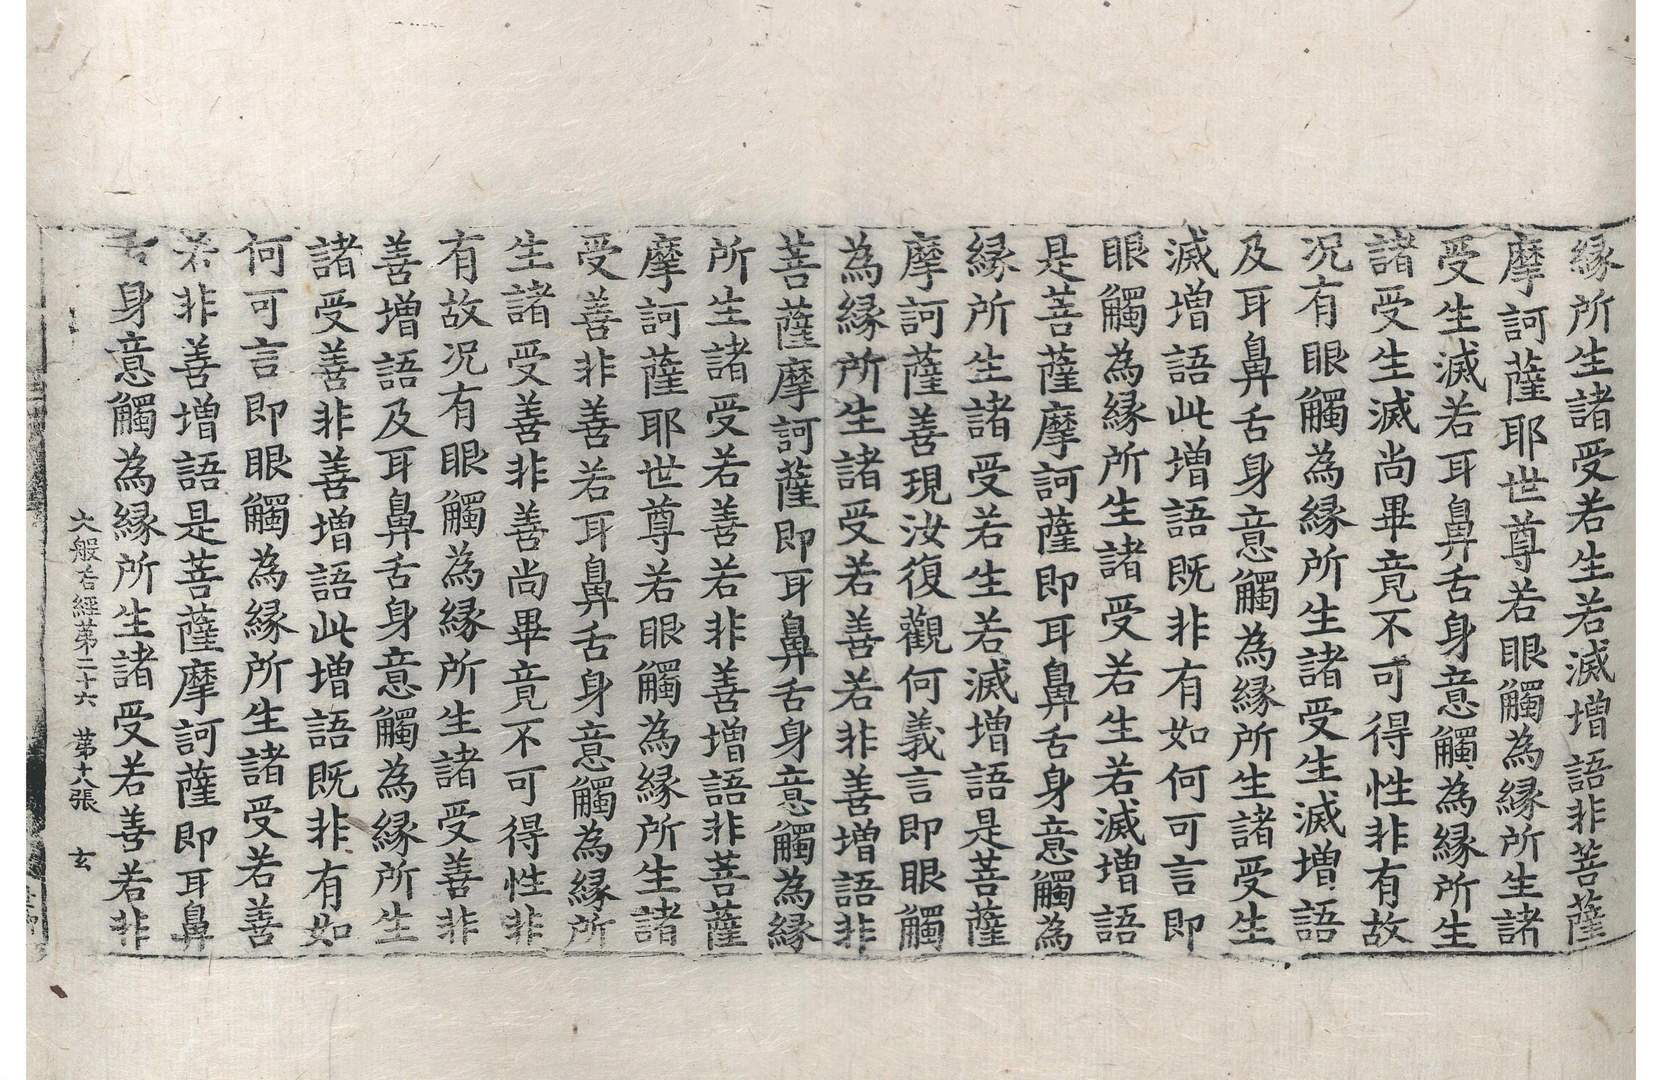 縁所生諸受若生若滅增語非菩薩
摩訶薩耶世尊若眼觸為縁所生諸
受生滅若耳鼻舌身意觸為縁所生
諸受生滅尚畢竟不可得性非有故
况有眼觸為縁所生諸受生滅增語
及耳鼻舌身意觸為縁所生諸受生
滅增語此增語既非有如何可言即
眼觸為縁所生諸受若生若滅增語
是菩薩摩訶薩即耳鼻舌身意觸為
縁所生諸受若生若滅增語是菩薩
摩訶薩善現汝復觀何義言即眼觸
為縁所生諸受若善若非善增語非
菩薩摩訶薩即耳鼻舌身意觸為縁
所生諸受若善若非善增語非菩薩
摩訶薩耶世尊若眼觸為縁所生諸
受善非善若耳鼻舌身意觸為縁所
生諸受善非善尚畢竟不可得性非
有故况有眼觸為縁所生諸受善非
善增語及耳鼻舌身意觸為縁所生
諸受善非善增語此增語既非有如
何可言即眼觸為縁所生諸受若善
若非善增語是菩薩摩訶薩即耳鼻
舌身意觸為縁所生諸受若善若非
大般若經苐二十六 苐十八張 玄